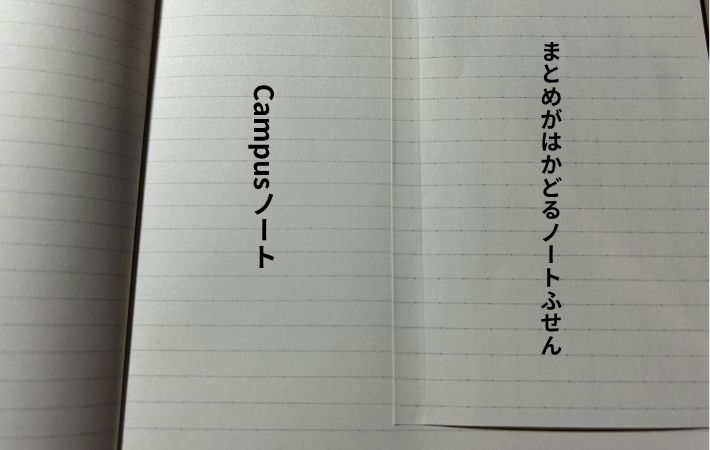 まとめがはかどるノートふせん
Campusノート